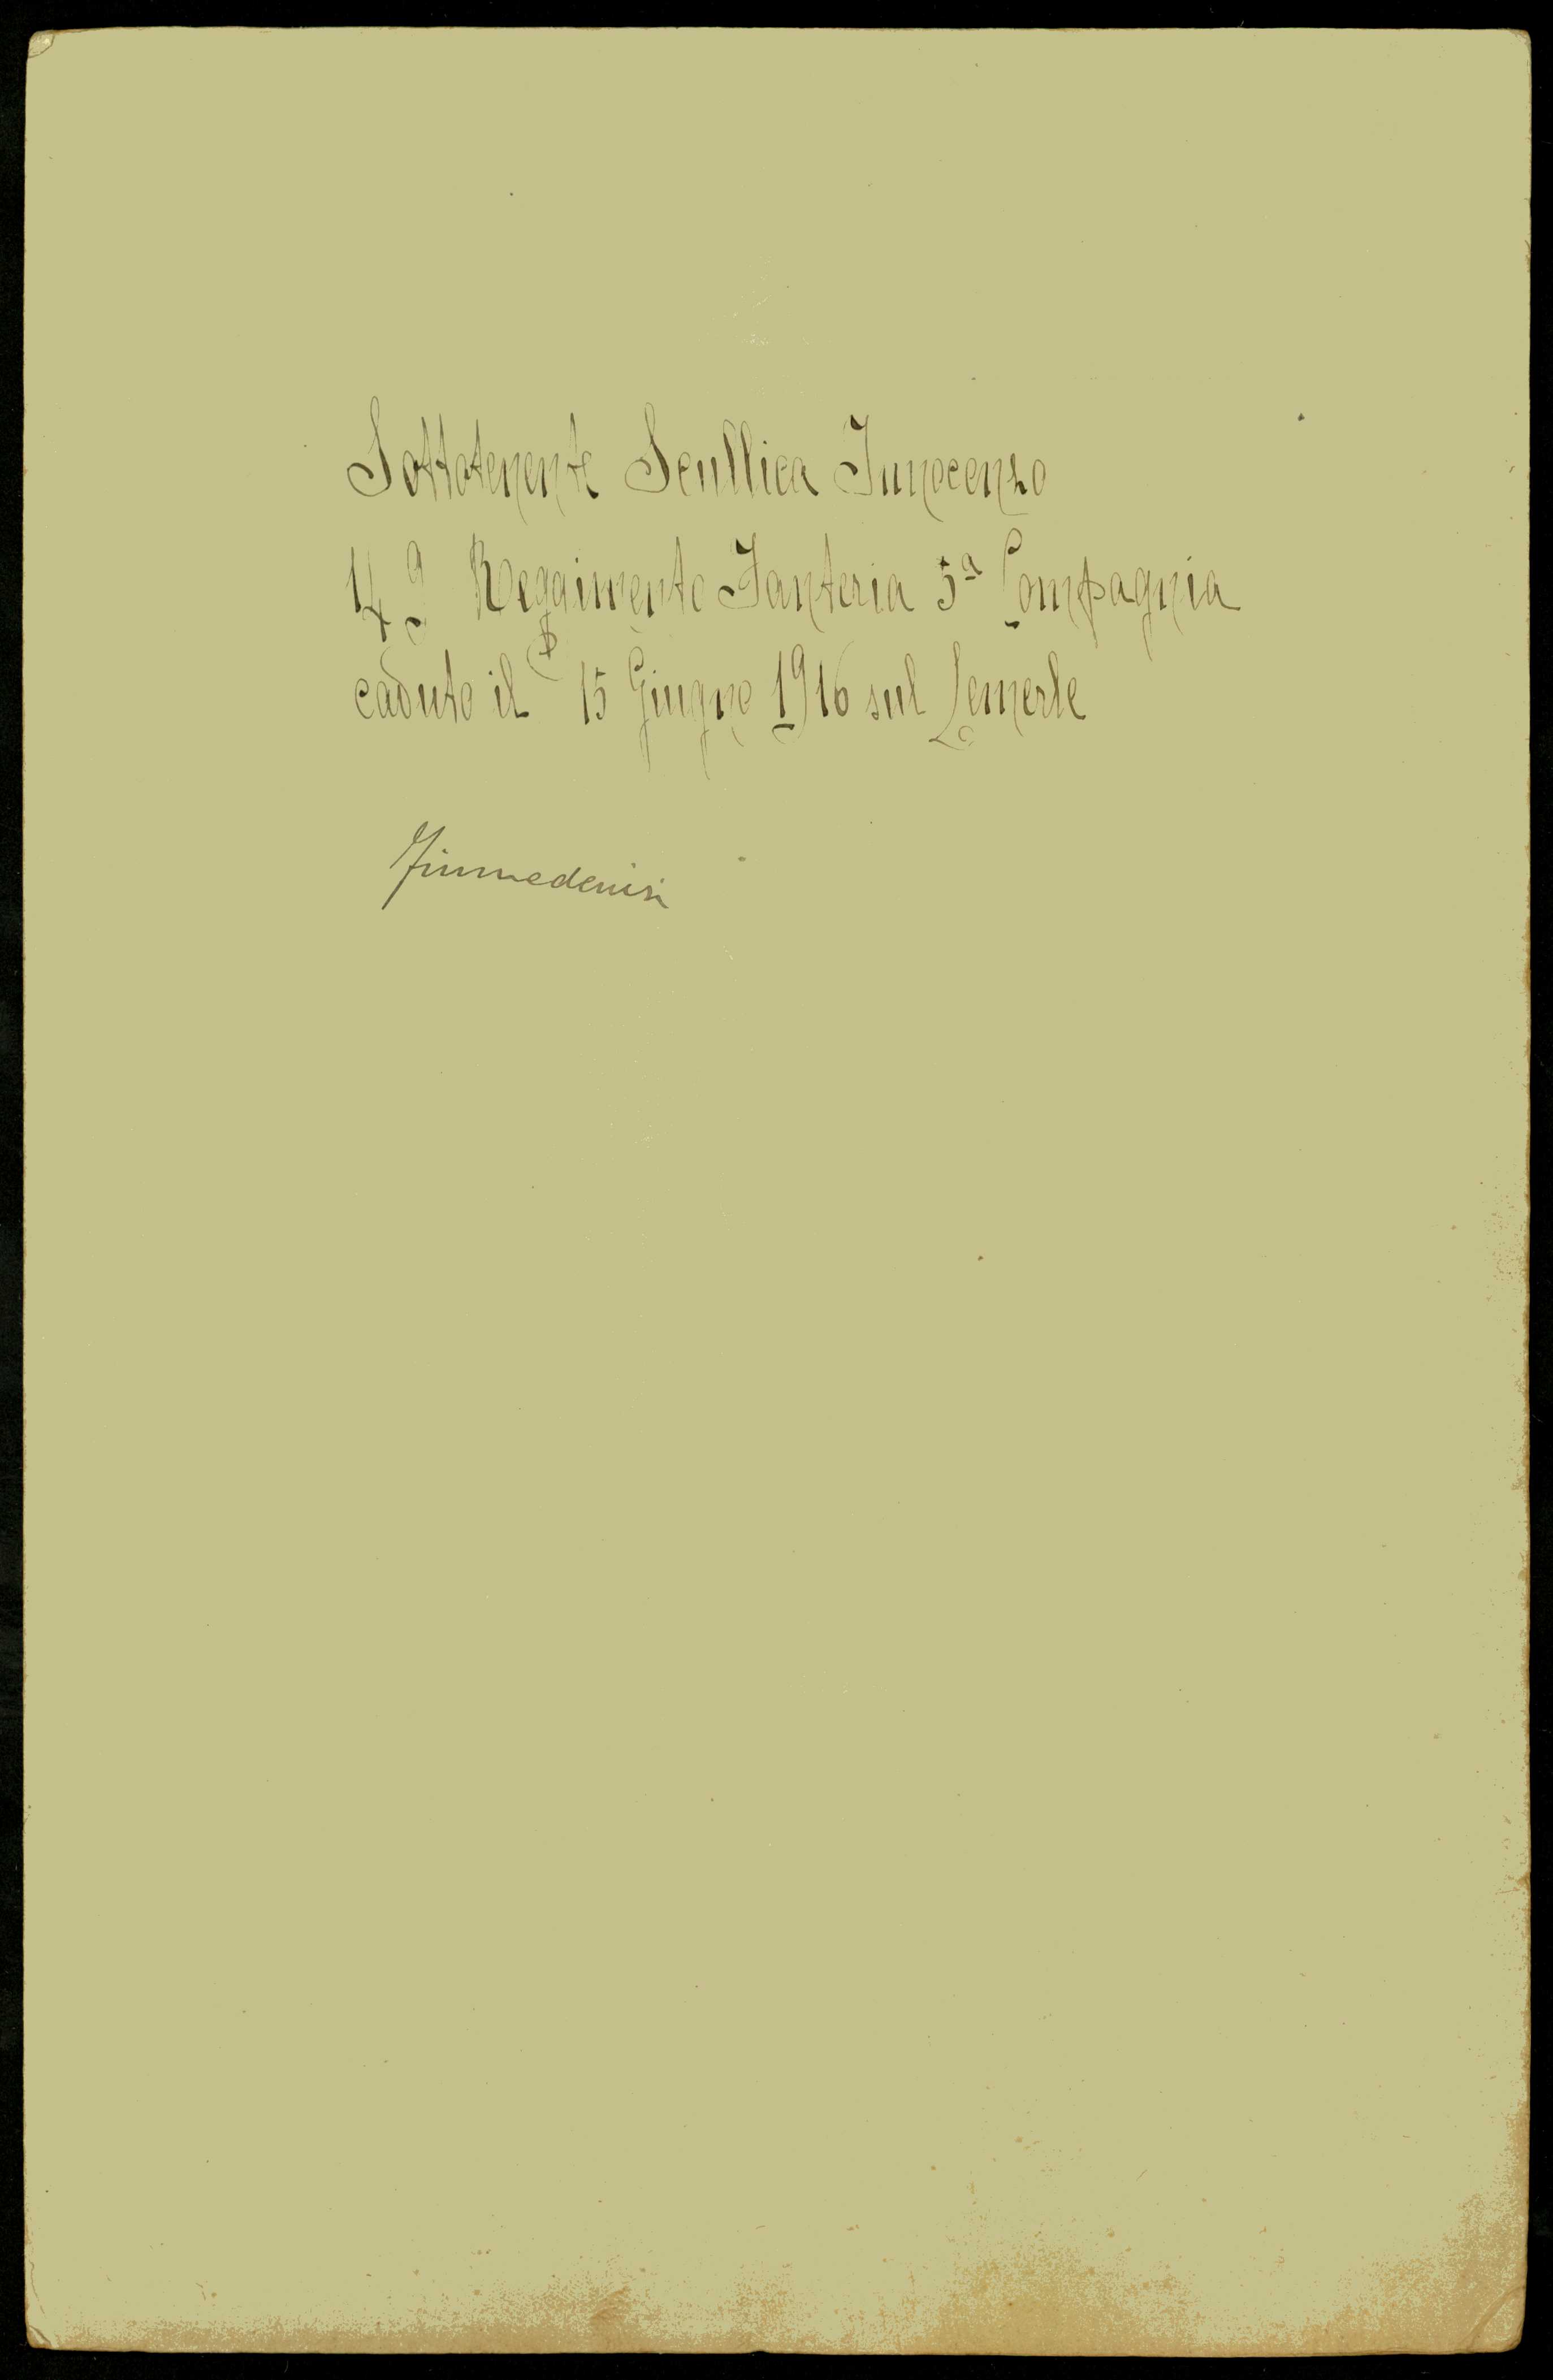 Sottotenente Scullica Innocenzo
149 Reggimento Fanteria 5ª Compagnia
caduto il 15 Giugno 1916 sul Lemerle
Fiumedenisi